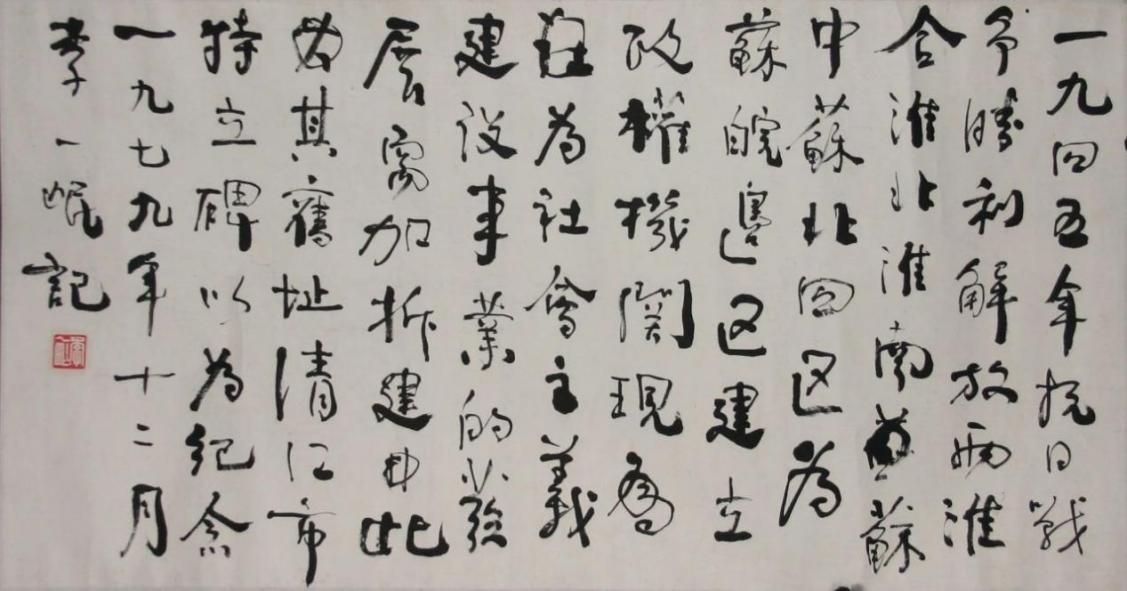 一九四五年抗日戰
爭勝利解放兩淮
合淮北淮南蘇
中蘇北四区為
蘇皖邊区建立
政權機關現為
為社會主義
建設事業的發
展加拆建此
其舊址清江市
特立碑以為紀念
一九七九年十二月
李一氓記